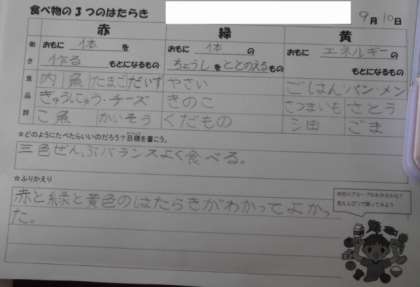 食べ物の3つのはたらき
9月10日
赤 緑 黄
働き おもに 体 を 作る もとになるもの
おもに 体 の ちょうしをととのえるもの
おもに エネルギーの もとになるもの
食品群
肉 魚 たまご だいず やさい ごはん パン・メン
ぎゅうにゅう・チーズ きのこ さつまいも さとう
こ魚 かいそう くだもの ごま
★どのようにたべたらいいのだろう?目標を書こう。
三色ぜんぶバランスよく食べる。
★ふりかえり
赤と緑と黄色のはたらきがわかってよかっ
た。